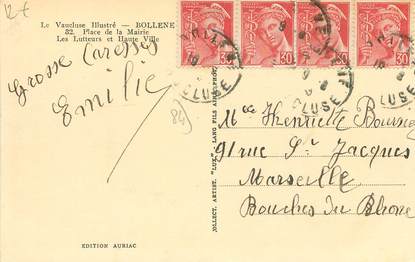 12€
Le Vaucluse Illustré — BOLLENE
82. Place de la Mairie
Les Lutteurs et Haute Ville
Grosse Caresses
Emilie
84)
30 30 30 30
BOLLENE
VAUCLUSE
Mlle Henriette
91 rue St Jacques
Marseille
Bouches du Rhone
COLLECT. ARTIST. "LUX", LANG FILS AINÉ
EDITION AURIAC